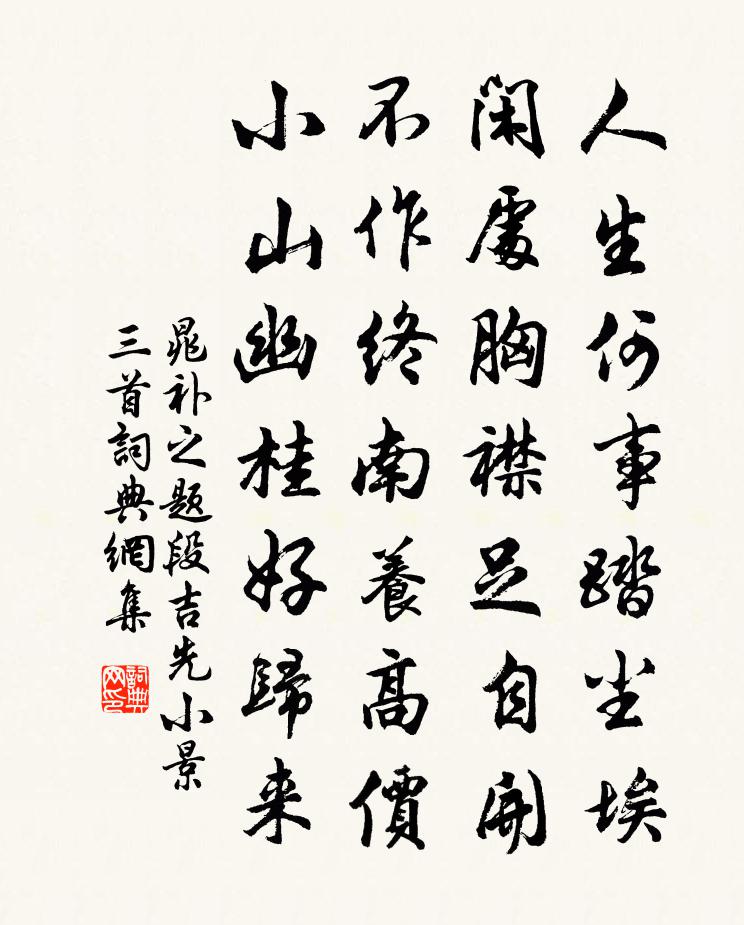 人生何事踏尘埃
闲處胸襟足自開
不作终南養高價
小山幽桂好歸来
晁补之题段吉先小景
三首詞典網集
詞典网印